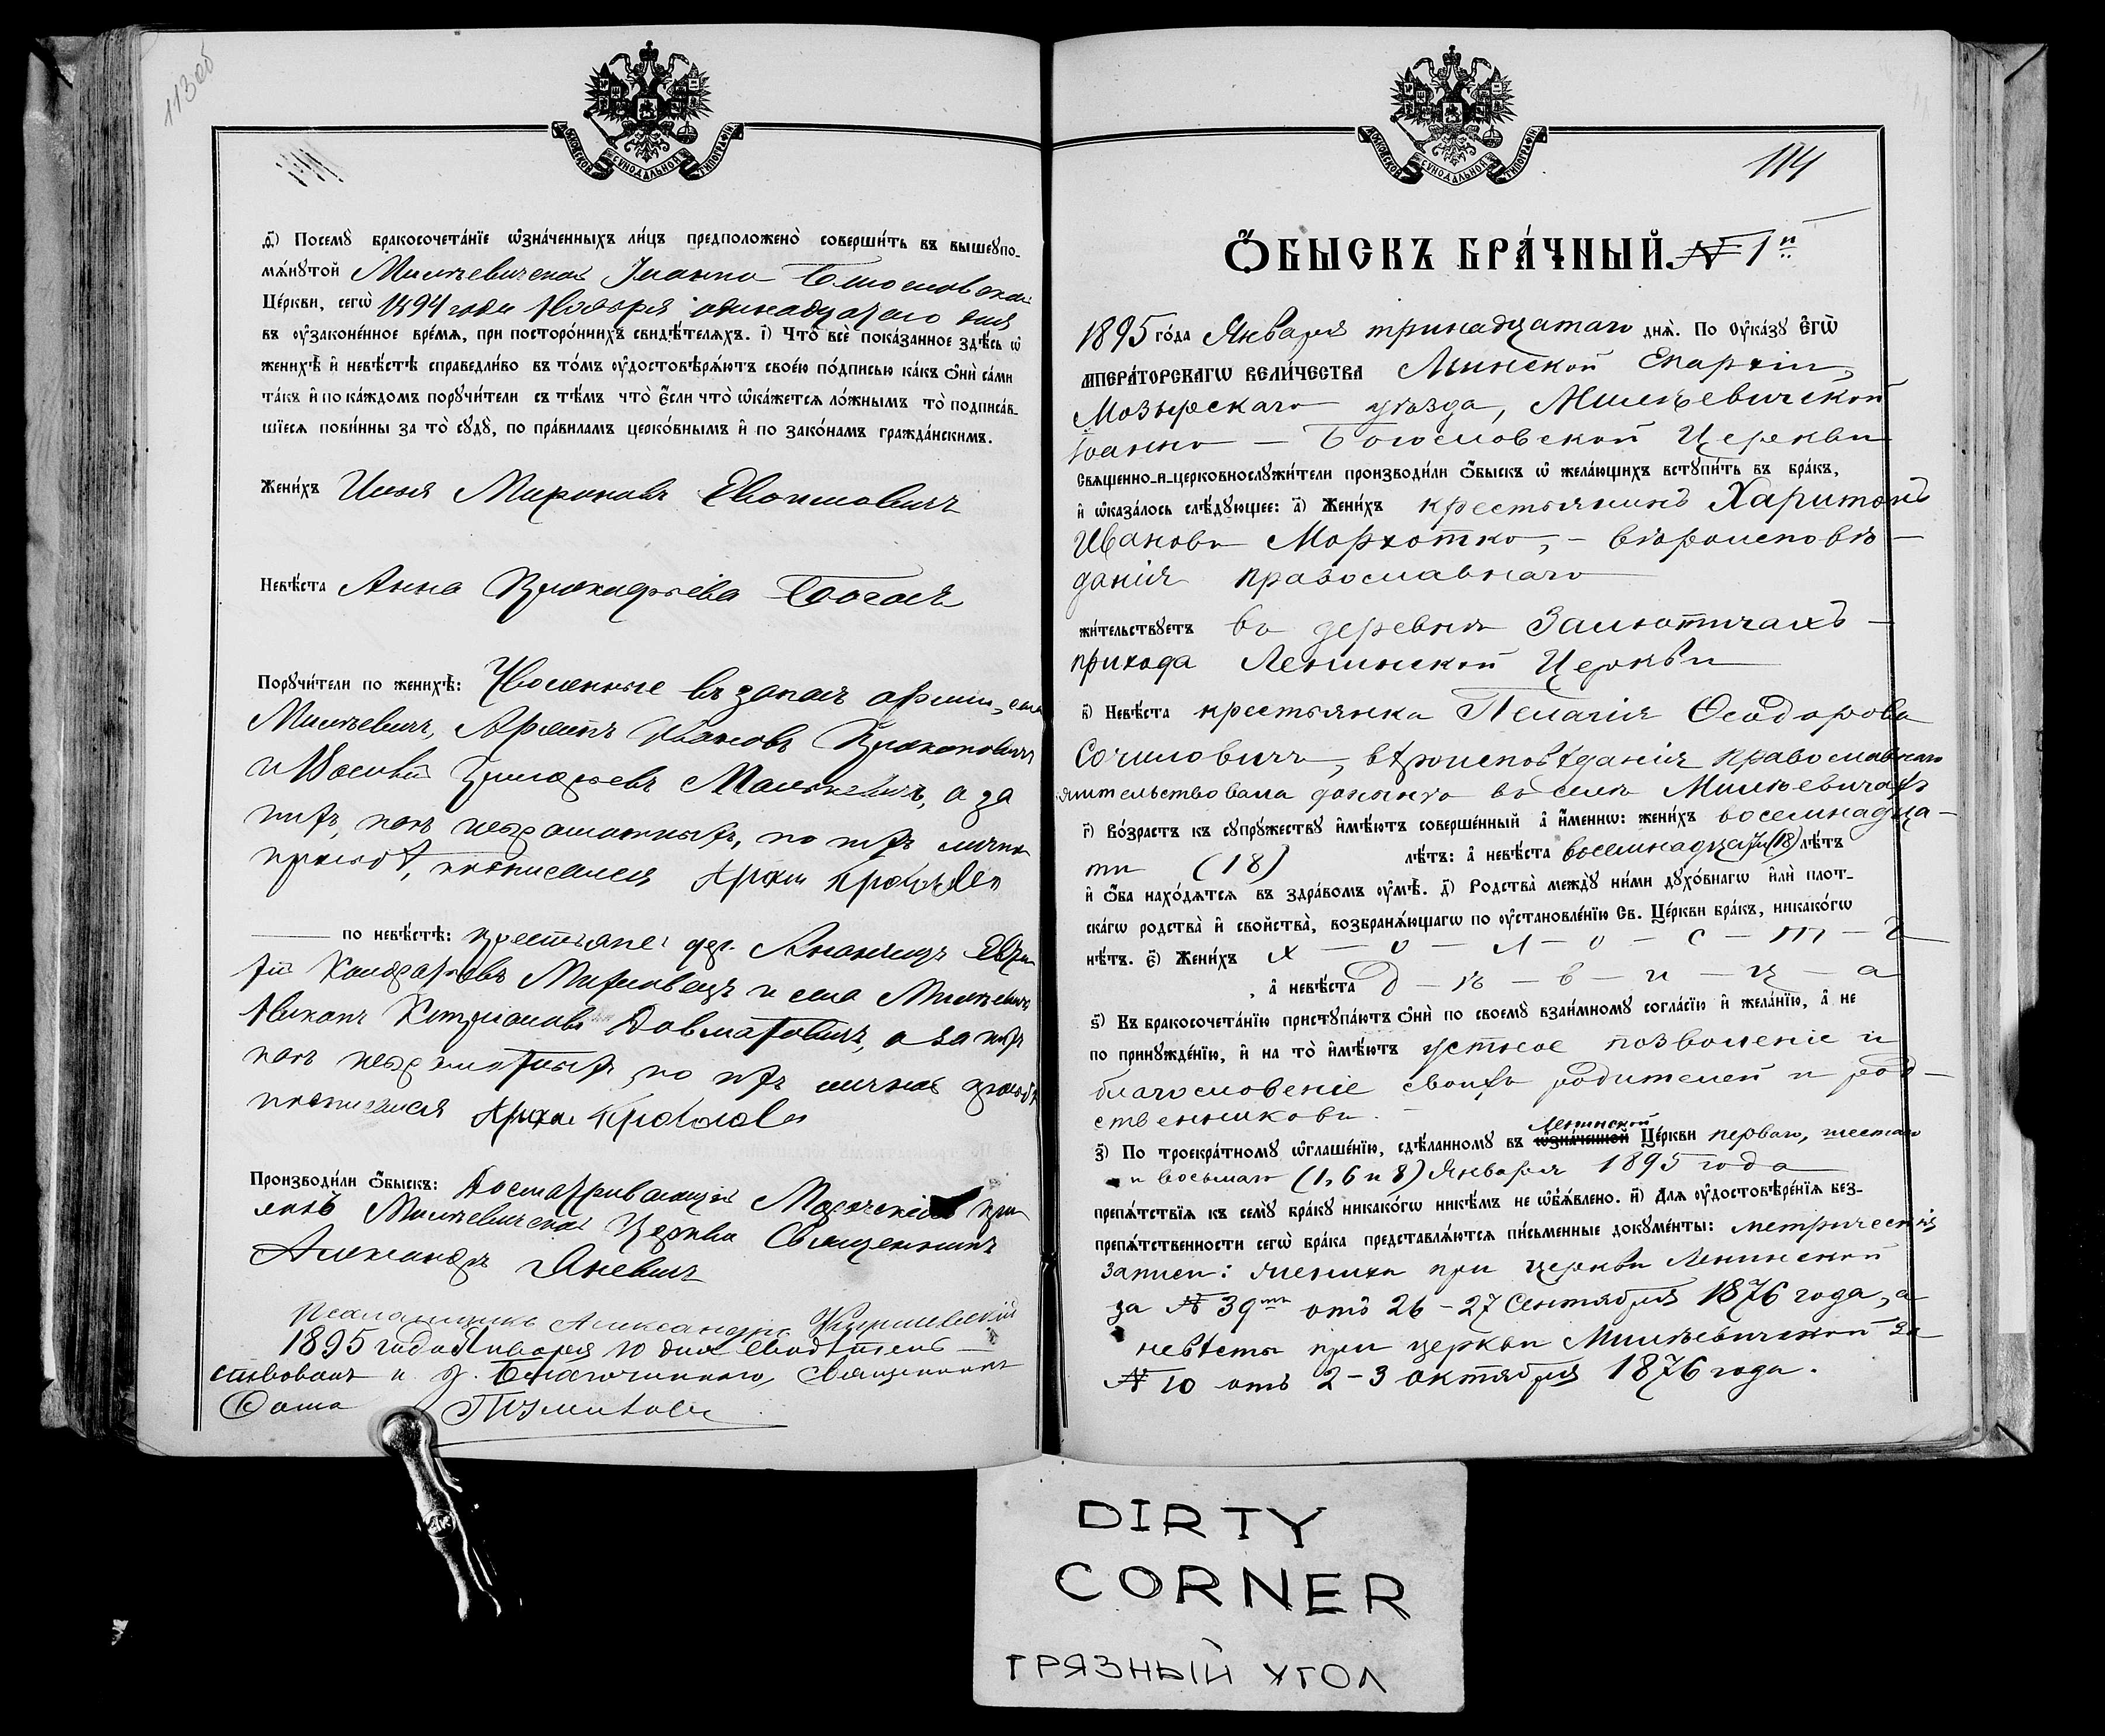 113об
МОСКОВСКОЙ СѴНОДАЛЬНОЙ ТИПОГРАФІИ
д҃) Посемꙋ̀ бракосочета́нїе ѡ҆зна́ченныхъ ли́цъ предположено̀ соверши́ть въ вышеꙋпо-
мѧ́нꙋтой Милевичской Іоанно Богословской
Це́ркви, сегѡ̀ 1894 года Ноября одинадцатаго дня
въ ᲂу҆законе́нное вре́мѧ, при посторо́ннихъ свидѣ́телѧхъ. і҃) Что̀ всѐ пока́занное здѣ́сь ѡ҆
женихѣ̀ и҆ невѣ́стѣ справедли́во въ то́мъ ᲂу҆достовѣрѧ́ютъ свое́ю по́дписью ка́къ ѻ҆нѝ са́ми
та́къ и҆ по ка́ждомъ порꙋчи́тели съ тѣ́мъ что̀ є҆́сли что̀ ѡ҆ка́жетсѧ ло́жнымъ то̀ подписа́в-
шїесѧ пови́нны за то̀ сꙋдꙋ̀, по пра́виламъ церко́внымъ и҆ по зако́намъ гражда́нскимъ.
Жени́хъ Илья Мироновъ
Невѣ́ста Анна
Порꙋчи́тели по женихѣ̀: Уволенные въ запасъ арміи, села
Милевичъ, Ивановъ Прокоповичъ
и Григорьевъ а за
нихъ, какъ неграмотныхъ, по ихъ личной
прозьбѣ, росписался
по невѣ́стѣ: крестьяне: дер.
и села Милевичъ
Довматовичъ, а за нихъ
какъ неграмотныхъ по ихъ личной прозьбѣ
росписался
Производи́ли ѻ҆́быскъ:
Милевичской Церкви Священникъ
Александръ Яневичъ
Псаломщикъ Александръ
1895 года Января 10 дня свидѣтель-
ствовалъ и. д. Благочиннаго, Священникъ
Фома
МОСКОВСКОЙ СѴНОДАЛЬНОЙ ТИПОГРАФІИ
114
Ѻ҆́БЫСКЪ БРА́ЧНЫЙ. № 1й
1895 го́да Января тринадцатаго днѧ̀. По Оу҆ка́зꙋ Є҆гѡ̀
мпера́торскагѡ Вели́чества Минской Епархіи,
Мозырскаго уѣзда, Милевичской
Іоанно - Богословской Церкви
Свѧщенно-и-церковнослꙋжи́тели производи́ли ѻ҆́быскъ ѡ҆ жела́ющихъ встꙋпи́ть въ бра́къ,
и҆ ѡ҆каза́лось слѣ́дꙋющее: а҃) Жени́хъ крестьянинъ Харитонъ
Ивановъ Морхотко, - вѣроисповѣ-
данія православнаго
жи́тельствꙋетъ въ деревнѣ Залютичахъ -
прихода Ленинской Церкви
в҃) Невѣ́ста крестьянка Пелагія Ѳеодорова
Сочиловичъ, вѣроисповѣданія православнаго
жительствовала донынѣ въ селѣ Милевичахъ
г҃) Во́зрастъ къ сꙋпрꙋ́жествꙋ и҆мѣ́ютъ соверше́нный а҆ и҆́меннѡ: жени́хъ восемнадца-
ти (18) лѣ́тъ: а҆ невѣ́ста восемнадцати (18) лѣ́тъ
и҆ ѻ҆́ба нахо́дѧтсѧ въ здра́вомъ ᲂу҆мѣ̀. д҃) Родства̀ междꙋ̀ ни́ми дꙋхо́внагѡ и҆лѝ плот-
ска́гѡ родства̀ и҆ сво́йства̀, возбранѧ́ющагѡ по ᲂу҆становле́нїю Св. Це́ркви бра́къ, никако́гѡ
нѣ́тъ. є҃) Жени́хъ х - о - л - о - с - т - ъ
, а҆ невѣ́ста Д - ѣ - в - и - ц - а
ѕ҃) Къ бракосочета́нїю пристꙋпа́ютъ ѻ҆нѝ по своемꙋ̀ взаи́мномꙋ согла́сїю и҆ жела́нїю, а҆ не
по принꙋжде́нїю, и҆ на то̀ и҆мѣ́ютъ устное позволеніе и
благословеніе своихъ родителей и род-
ственниковъ.
Ленинской
з҃) По троекра́тномꙋ ѡ҆глаше́нїю, сдѣ́ланномꙋ въ ѡ҆зна́ченной Це́ркви перваго, шестаго
и восьмаго (1, 6 и 8) Января 1895 года
препѧ́тствїѧ къ семꙋ̀ бра́кꙋ никако́гѡ никѣ́мъ не ѡ҆б̾ѧ́влено. и҃) Длѧ ᲂу҆достовѣре́нїѧ без-
препѧ́тственности сегѡ̀ бра́ка представлѧ́ютсѧ пи́сьменные докꙋме́нты: метрическія
записи: жениха при церкви Ленинской
за № 39мъ отъ 26 - 27 Сентября 1876 года, а
невѣсты при церкви Милевичской за
№ 10 отъ 2 - 3 октября 1876 года.
DIRTY
CORNER
ГРЯЗНЫЙ УГОЛ